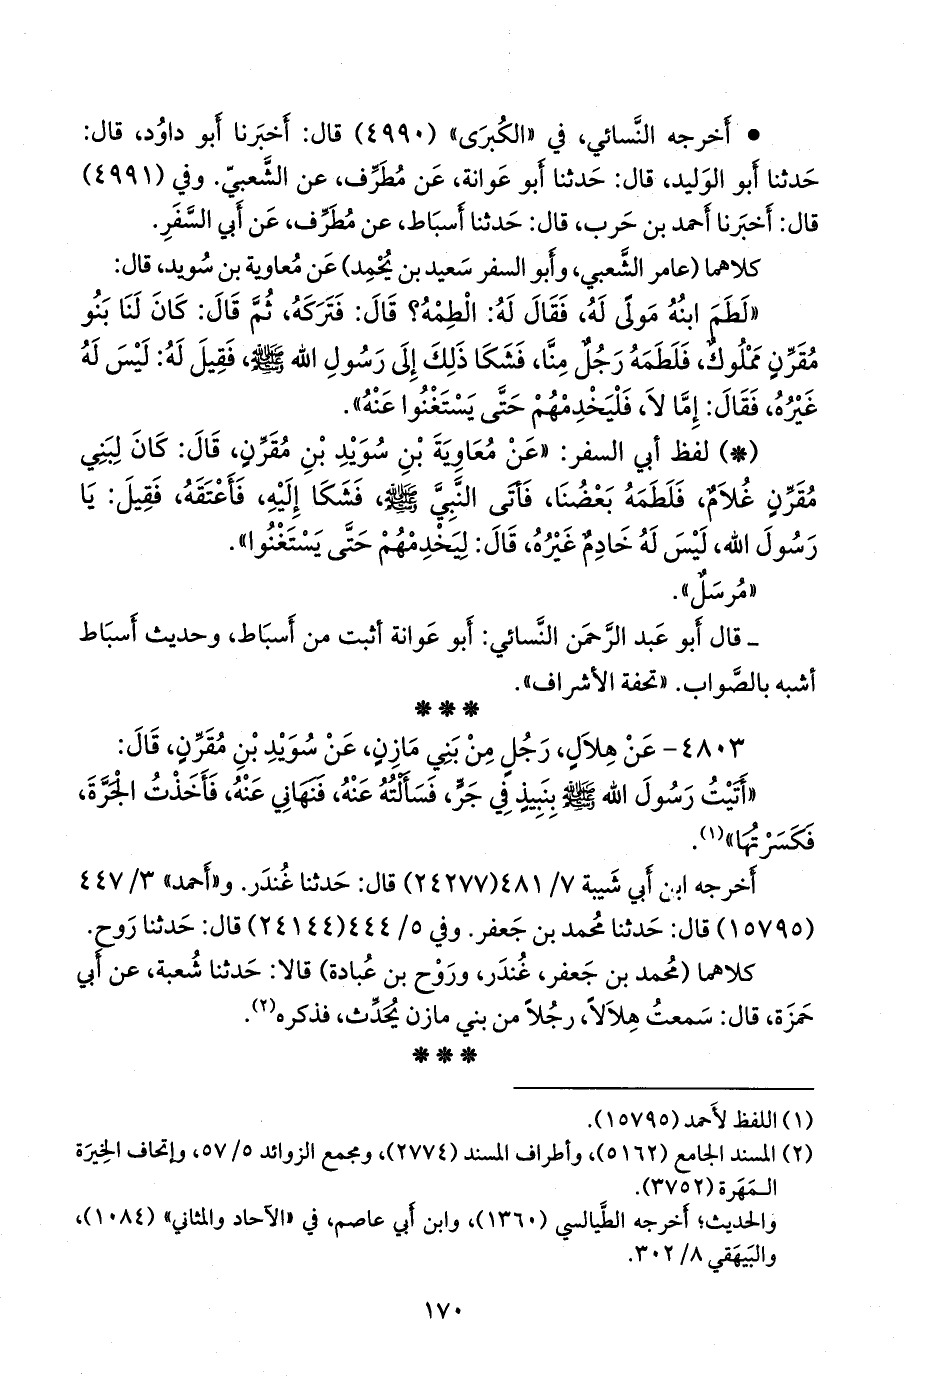 • أَخرجه النَّسائي، في «الكُبرَى» (٤٩٩٠) قال: أَخبَرنا أَبو داوُد، قال:
حَدثنا أَبو الوَليد، قال: حَدثنا أَبو عَوانة، عَن مُطَرِّف، عن الشَّعبيّ. وفي (٤٩٩١)
قال: أَخبَرنا أَحمد بن حَرب، قال: حَدثنا أَسبَاط، عن مُطَرِّف، عَن أَبي السَّفَرِ.
كلاهما (عامر الشَّعبي، وأَبو السفر سَعيد بن يُحْمِد) عَن مُعاوية بن سُويد، قال:
«لَطَمَ ابنُهُ مَولًى لَهُ، فَقَالَ لَهُ: الْطِمْهُ؟ قَالَ: فَتَرَكَهُ، ثُمَّ قَالَ: كَانَ لَنَا بَنُو
مُقَرِّنٍ مَمْلُوكٌ، فَلَطَمَهُ رَجُلٌ مِنَّا، فَشَكَا ذَلِكَ إِلَى رَسُولِ الله ﷺ، فَقِيلَ لَهُ: لَيْسَ لَهُ
غَيْرُهُ، فَقَالَ: إِمَّا لاَ، فَلْيَخْدِمْهُمْ حَتَّى يَسْتَغْنُوا عَنْهُ».
(*) لفظ أبي السفر: «عَنْ مُعَاوِيَةَ بْنِ سُوَيْدِ بْنِ مُقَرِّنٍ، قَالَ: كَانَ لِبَنِي
مُقَرِّنٍ غُلاَمٌ، فَلَطَمَهُ بَعْضُنَا، فَأَتَى النَّبِيَّ ﷺ، فَشَكَا إِلَيْهِ، فَأَعْتَقَهُ، فَقِيلَ: يَا
رَسُولَ الله، لَيْسَ لَهُ خَادِمٌ غَيْرُهُ، قَالَ: لِيَخْدِمْهُمْ حَتَّى يَسْتَغْنُوا».
«مُرسَلٌ».
ـ قال أَبو عَبد الرَّحمَن النَّسائي: أَبو عَوانة أثبت من أَسبَاط، وحديث أَسبَاط
أشبه بالصَّواب. «تحفة الأشراف».
* * *
٤٨٠٣- عَنْ هِلاَلٍ، رَجُلٍ مِنْ بَنِي مَازِنٍ، عَنْ سُوَيْدِ بْنِ مُقَرِّنٍ، قَالَ:
«أَتَيْتُ رَسُولَ الله ﷺ بِنَبِيذٍ فِي جَرٍّ، فَسَأَلْتُهُ عَنْهُ، فَنَهَانِي عَنْهُ، فَأَخَذْتُ الْجَرَّةَ،
فَكَسَرْتُهَا»(١).
أَخرجه ابن أَبي شَيبة ٧/ ٤٨١(٢٤٢٧٧) قال: حَدثنا غُندَر. و«أَحمد» ٣/ ٤٤٧
(١٥٧٩٥) قال: حَدثنا مُحمد بن جَعفر. وفي ٥/ ٤٤٤(٢٤١٤٤) قال: حَدثنا رَوح.
كلاهما (مُحمد بن جَعفر، غُندَر، ورَوْح بن عُبادة) قالا: حَدثنا شُعبة، عن أَبي
حَمزَة، قال: سَمعتُ هِلاَلاً، رجُلاً من بني مازن يُحَدِّث، فذكره(٢).
* * *
(١) اللفظ لأَحمد (١٥٧٩٥).
(٢) المسند الجامع (٥١٦٢)، وأطراف المسند (٢٧٧٤)، ومجمع الزوائد ٥/ ٥٧، وإتحاف الخِيرَة
المَهَرة (٣٧٥٢).
والحديث؛ أَخرجه الطَّيالسي (١٣٦٠)، وابن أَبي عاصم، في «الآحاد والمثاني» (١٠٨٤)،
والبَيهَقي ٨/ ٣٠٢.
١٧٠